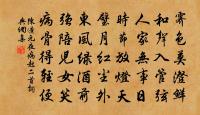 霽色美澄鮮
和聲入管弦
人家無事日
時節放燈天
璧月紅塵外
東風綠酒前
強陪兒女笑
病骨得輕便
元夜病起二首詞
典網集